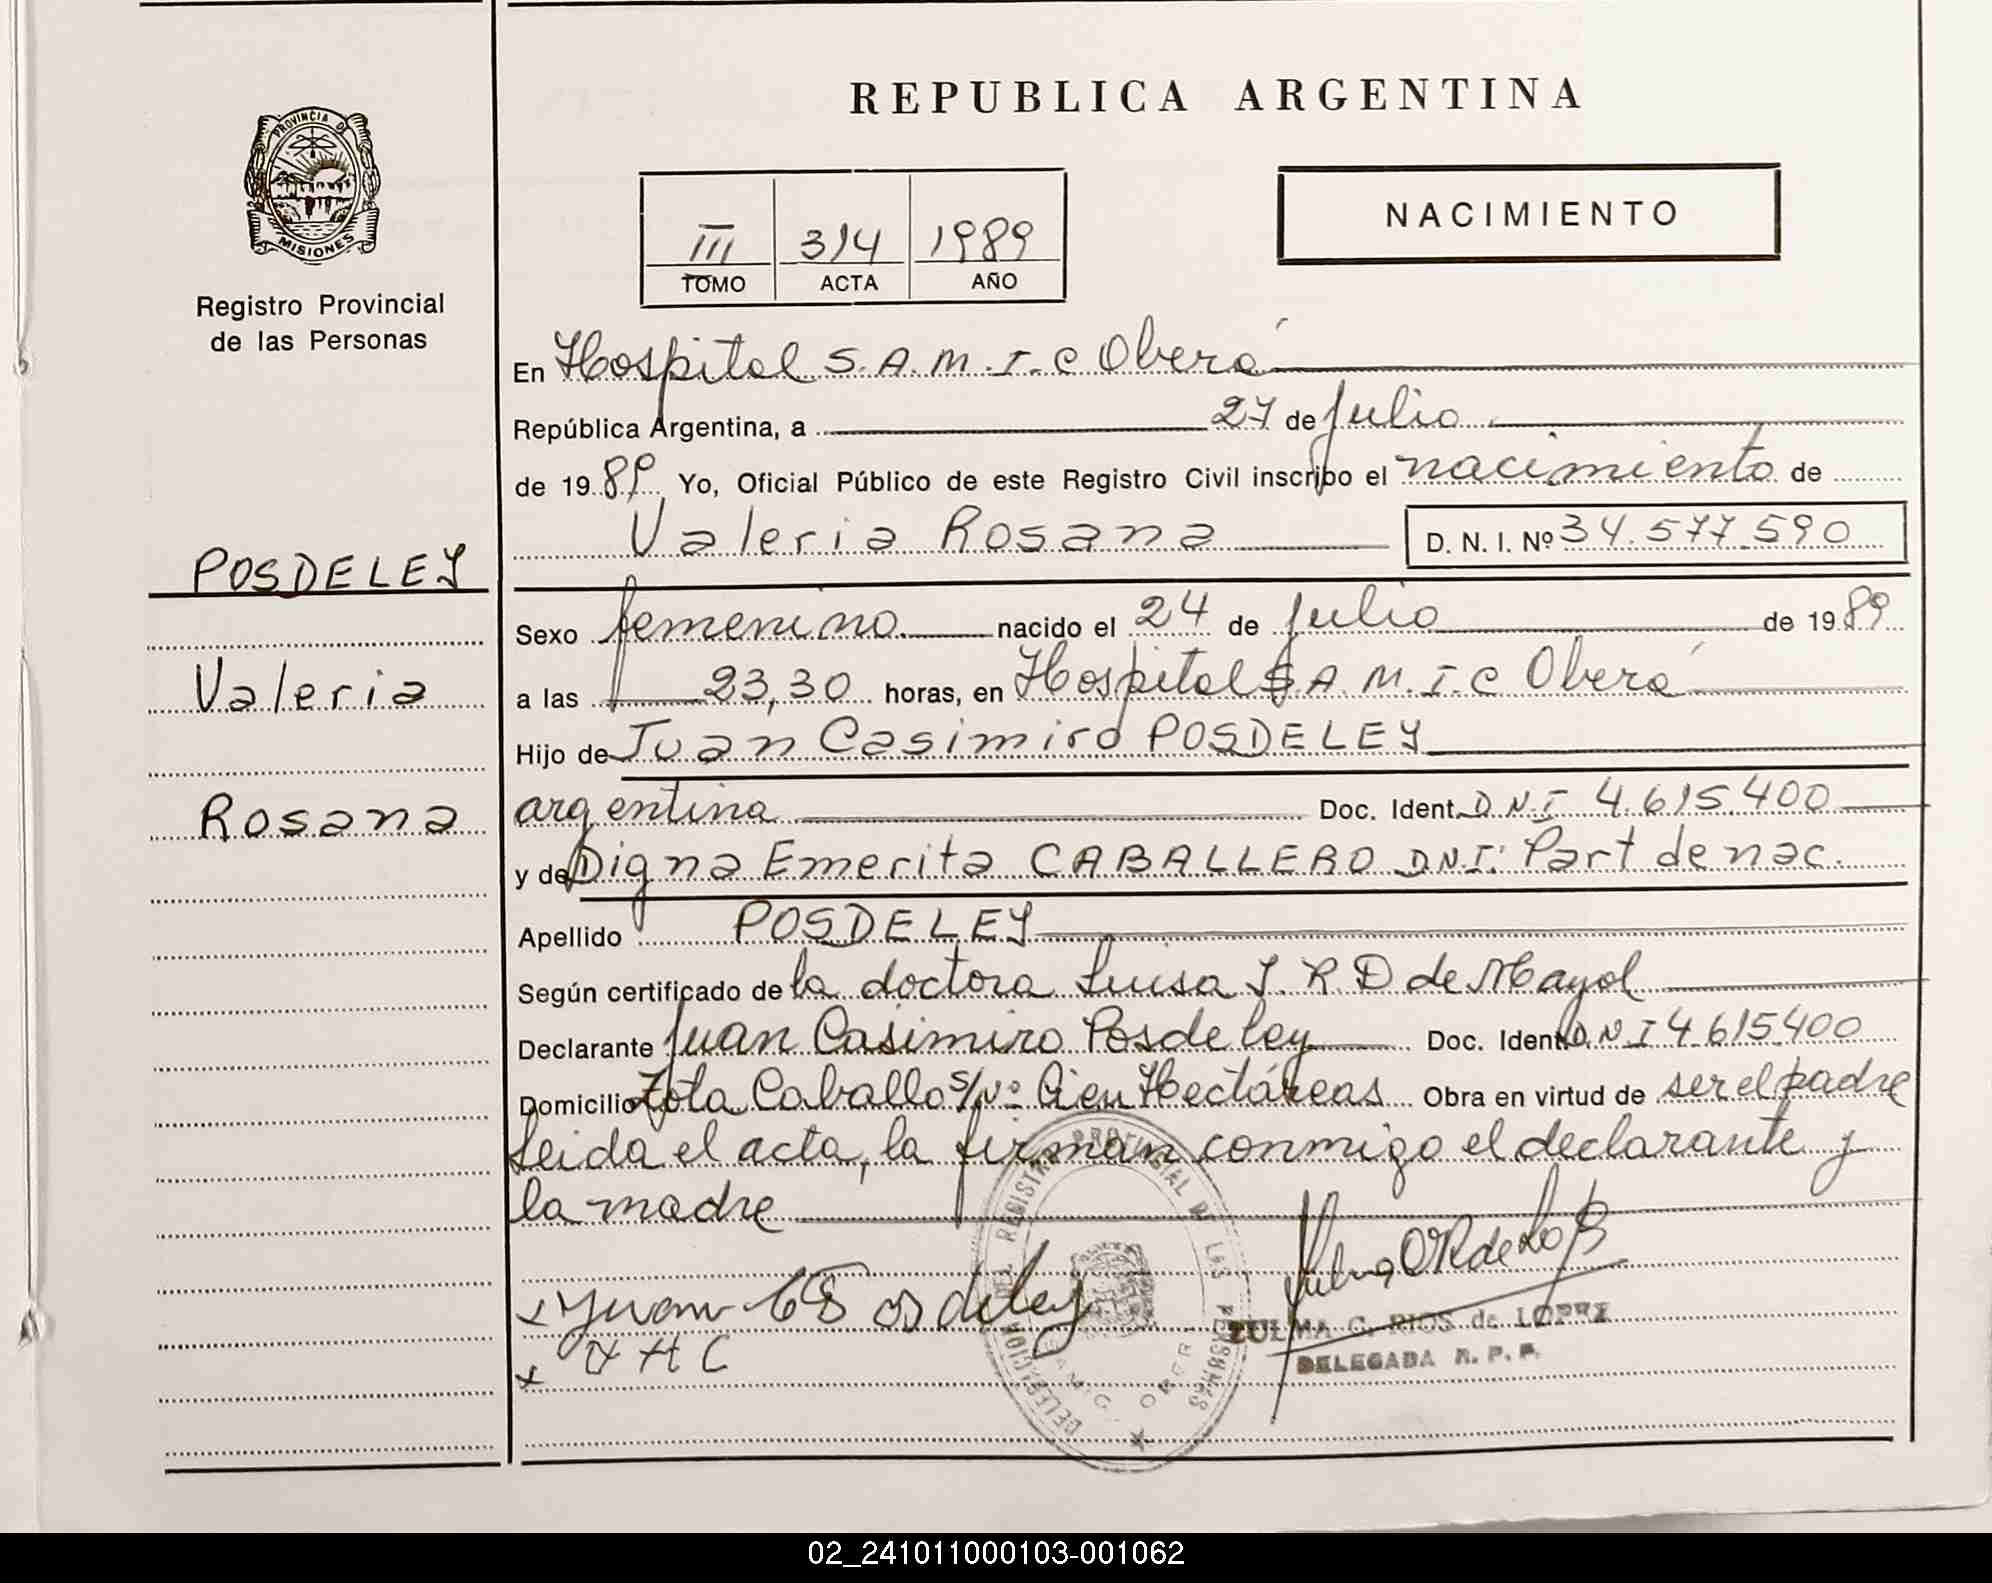 REPUBLICA ARGENTINA
PROVINCIA DE
MISIONES
Registro Provincial
de las Personas
III 314 1989
TOMO ACTA AÑO
NACIMIENTO
En Hospital S.A.M.I.C Oberá
República Argentina, a 27 de Julio
de 1989 Yo, Oficial Público de este Registro Civil inscribo el nacimiento de
Valeria Rosana D. N. I. Nº 34.577.590
POSDELEY
Valeria
Rosana
Sexo femenino nacido el 24 de Julio de 1989
a las 23,30 horas, en Hospital S.A.M.I.C Oberá
Hijo de Juan Casimiro POSDELEY
argentina Doc. Ident. D.N.I 4.615.400
y de Digna Emerita CABALLERO D.N.I. Part de nac.
Apellido POSDELEY
Según certificado de la doctora Luisa J. R. D de Mayol
Declarante Juan Casimiro Posdeley Doc. Ident. D.N.I 4.615400
Domicilio Caballo s/Nº Cien Hectáreas Obra en virtud de ser el padre
Leida el acta, la firman conmigo el declarante y
la madre
x Juan Posdeley
x
ZULMA G. RIOS de LOPEZ
DELEGADA R. P. P.
DELEGACION DEL REGISTRO PROVINCIAL DE LAS PERSONAS
02_241011000103-001062